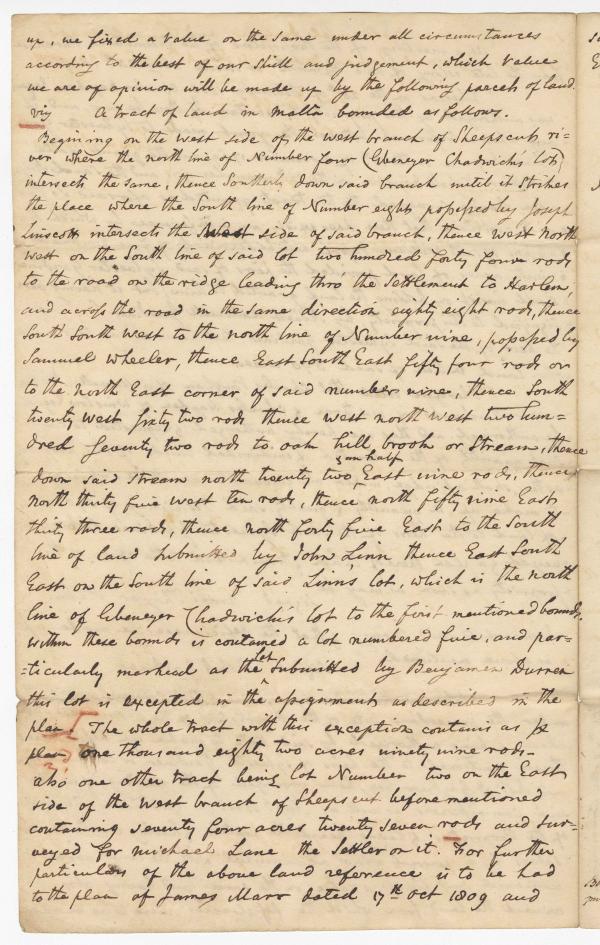 up, we fixed a value on the same under all circumstances
according to the best of our skill and judgement, which value
we are of opinion will be made up by the following parcels of land.
viz A tract of land in Malta bounded as follows.
Begining on the west side of the west branch of Sheepscut ri=
ver where the north line of Number four (Ebenezer Chadwick's lot)
intersects the same, thence Southerly down said branch until it Strikes
the place where the South line of Number eight possessed by Joseph
Linscott intersects the West side of said branch, thence west north
west on the South line of said lot two hundred forty four rods
to the road on the ridge leading thro' the Settlement to Harlem,
and across the road in the same direction eighty eight rods, thence
South South west to the north line of Number nine, possessed by
Samuel Wheeler, thence East South East fifty four rods on
to the north East corner of said number nine, thence South
twenty west sixty two rods thence west north west two hun=
dred seventy two rods to oak hill brook or Stream, thence
& an half
down said stream north twenty two East nine rods, thence
North thirty five west ten rods, thence north fifty nine East
thirty three rods, thence north forty five East to the South
line of land submitted by John Linn thence East South
East on the South line of said Linn's lot, which is the north
line of Ebenezer Chadwick's lot to the first mentioned bounds.
within these bounds is contained a lot numbered five, and par=
=ticularly marked as the lot submitted by Benjamin Durren
this lot is excepted in the assignment as described in the
plan The whole tract with this exception contains as pr
plan one thousand eighty two acres ninety nine rods-
also one other tract being lot Number two on the East
side of the West branch of Sheepscut before mentioned
containing seventy four acres twenty seven rods and sur=
veyed for Michael Lane the Settler on it. For further
particulars of the above land reference is to be had
to the plan of James Marr dated 17th Oct 1809 and